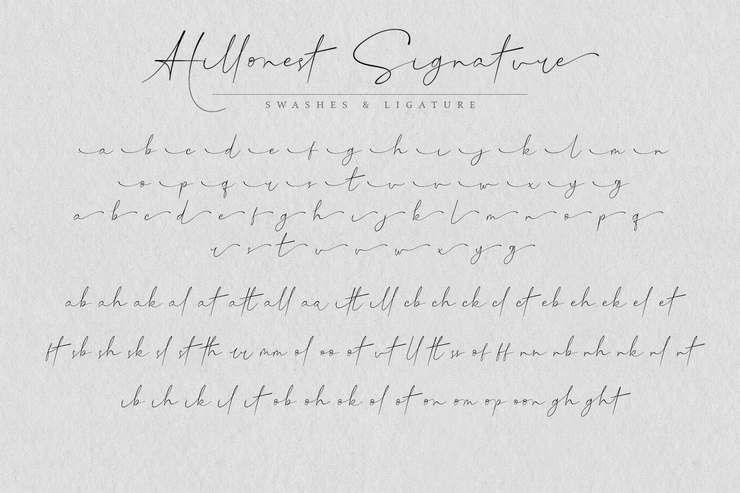 Hillonest Signature
SWASHES & LIGATURE
a b c d e f g h i j k l m n
o p q r s t u v w x y g
a b c d e f g h i j k l m n o p q
r s t u v w x y g
ab ah ak al at att all aa itt ill cb ch ck cl ct eb eh ek el et
ft sb sh sk sl st th rr mm ol oo ot utt ll tt ss of ff nn nb nh nk nl nt
ib ih ik il it ob oh ok ol ot on om op oon gh ght